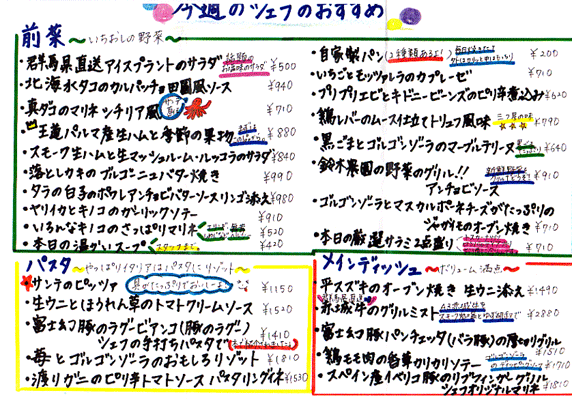 今週のシェフのおすすめ
前菜 〜いちおしの野菜〜
・群馬県直送アイスプラントのサラダ ¥500
・北海水タコのカルパッチョ田園風ソース ¥940
・真ダコのマリネ シチリア風 ¥710
・王道パルマ産生ハムと季節の果物 ¥880
・スモーク生ハムと生マッシュルーム・ルッコラのサラダ ¥840
・落としカキのゴルゴンゾーラバター焼き ¥990
・タラの白子のポワレアンチョビバターソースリゾット添え ¥980
・ヤリイカとキノコのガーリックソテー ¥910
・いろんなキノコのさっぱりマリネ ¥520
・本日の温かいスープ ¥420
・自家製パン (2種類あるよ!) ¥200
・いちごモッツァレラのカプレーゼ ¥710
・プリプリエビとキドニービーンズのピリ辛煮込み ¥620
・鶏レバームース仕立トリュフ風味 ¥790
・黒ごまとゴルゴンゾーラのマーグルテリーヌ ¥640
・鈴木農園の野菜のグリル!! アンチョビソース ¥910
・ゴルゴンゾーラとマスカルポーネチーズがたっぷりの
ジャガイモのオーブン焼き ¥710
・本日の厳選サラミ2点盛り ¥710
パスタ 〜やっぱりイタリアはパスタとリゾット〜
・サンラのピッツァ ¥1150
・生ウニとほうれん草のトマトクリームソース ¥1520
・富士幻豚のラグビアンコ(豚のラグー)
シェフの手打ちパスタで ¥1410
・苺とゴルゴンゾーラのおもしろリゾット ¥1810
・渡りガニのピリ辛トマトソース パスタリングイネ ¥1530
メインディッシュ 〜ボリューム満点〜
・平スズキのオーブン焼き 生ウニ添え ¥1490
・赤城牛のグリルミスト ¥2880
・富士幻豚パンチェッタ(バラ豚)の厚切りグリル ¥1510
・鶏モモ肉の香草カリカリソテー ¥1710
・スペイン産イベリコ豚のリブフィンガーグリル
シェフオリジナルマリネ ¥1810